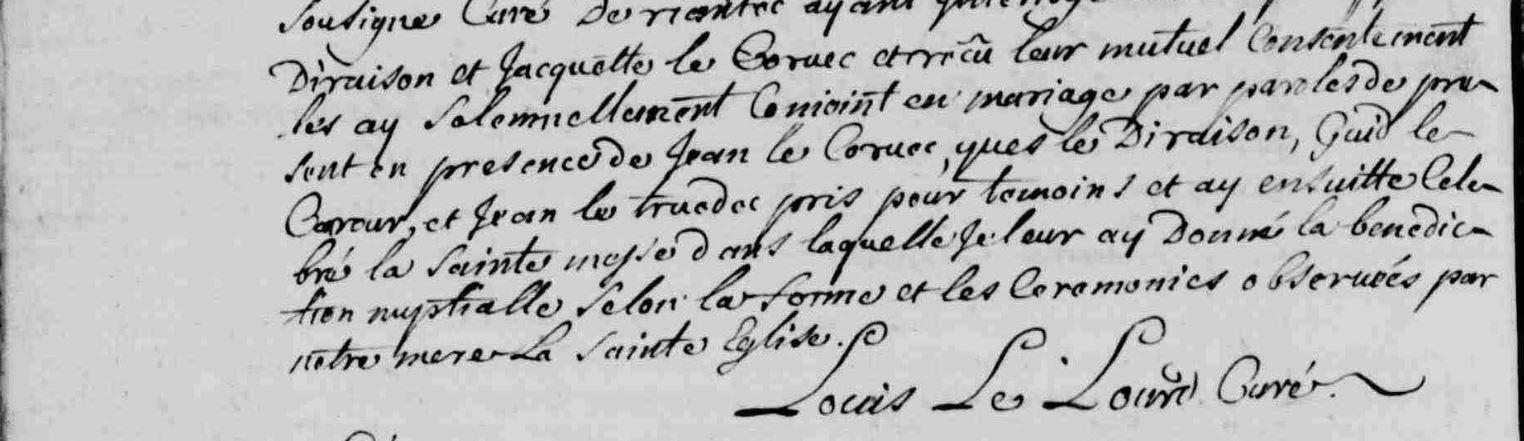 sousigne Curé De riantec ayant
Diraison et Jacquette le Coruec et reçu leur mutuel Consentement
les ay solemnellement Conioint en mariage par paroles de pre-
sent en presence de Jean le Coruec, yues le Diraison, Guid le
Coreur, et Jean le truedec pris pour temoins et ay ensuitte Cele-
bré la sainte messe dans laquelle Je leur ay Donné la benedic-
tion nuptialle selon la forme et les Ceremonies obseruées par
notre mere La sainte Eglise.
Louis Le Lourd Curé.